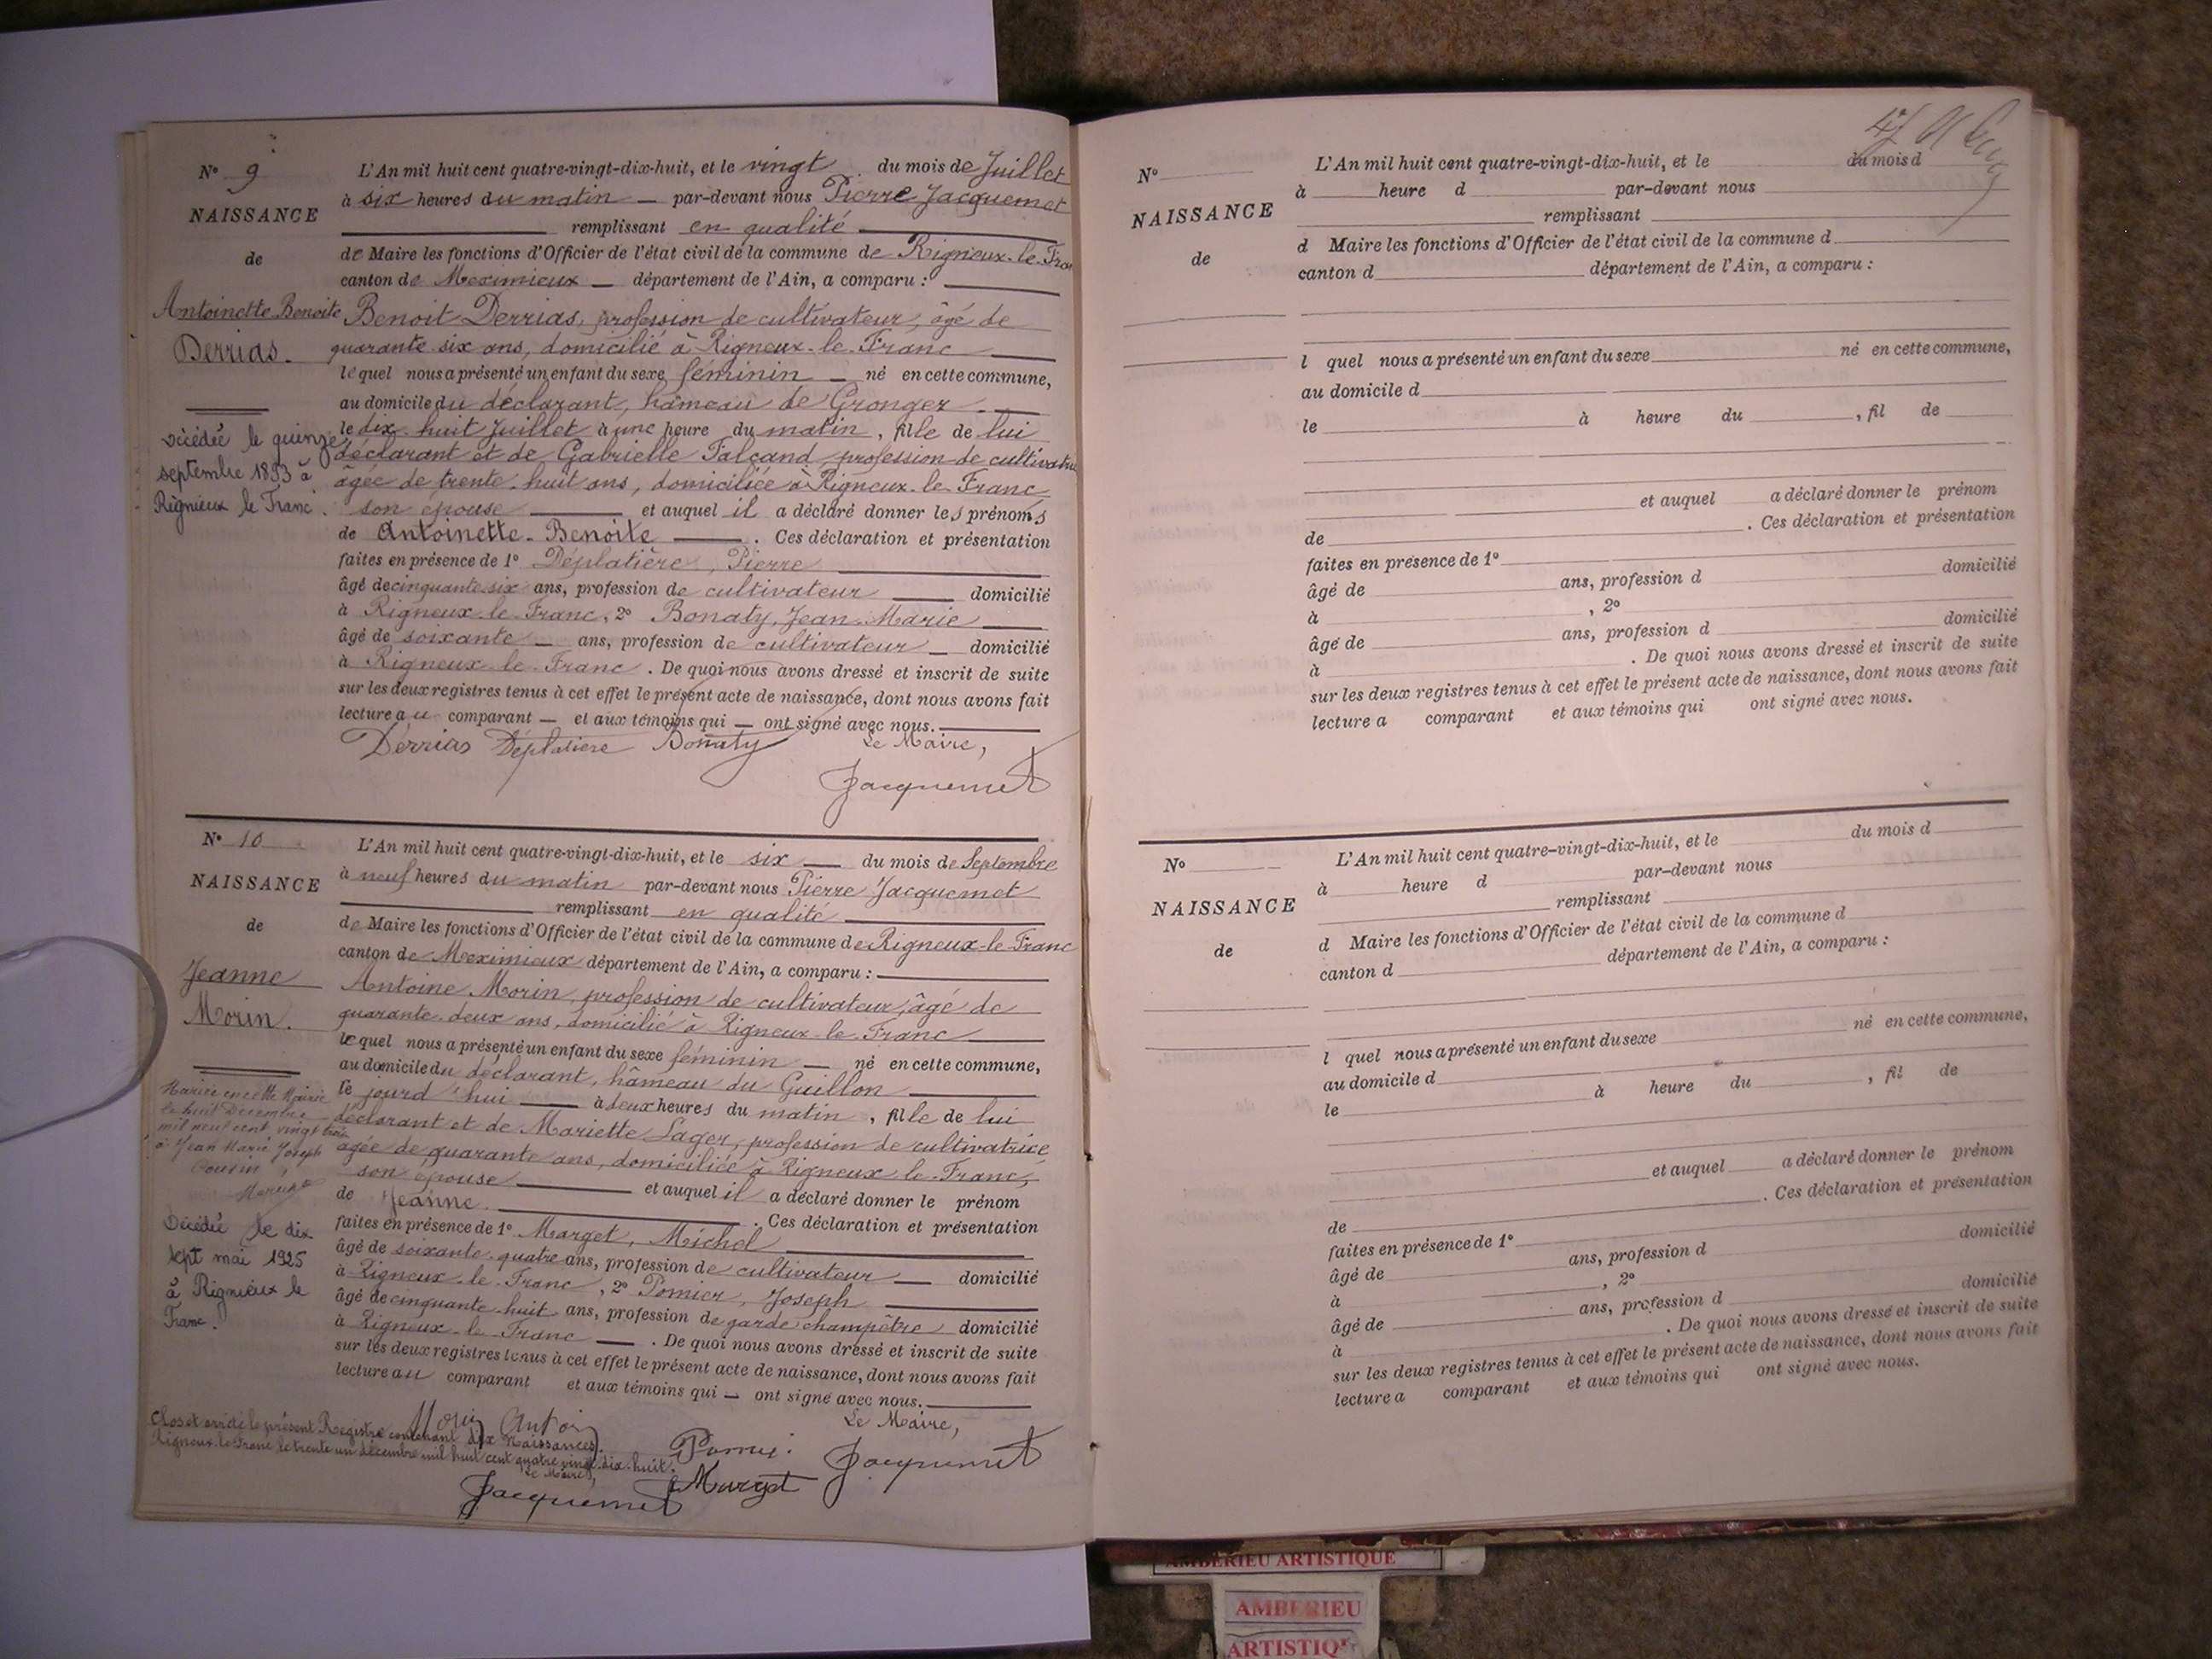 N° 9
NAISSANCE
de
Antoinette Benoite
Derrias.
Décédée le quinze
septembre 1893 à
Rignieux le Franc.
L'An mil huit cent quatre-vingt-dix-huit, et le vingt du mois de Juillet
à six heures du matin — par-devant nous Pierre Jacquemet
remplissant en qualité
de Maire les fonctions d'Officier de l'état civil de la commune de Rigneux-le-Fran
canton de Meximieux — département de l'Ain, a comparu :
Benoit Derrias, profession de cultivateur, âgé de
quarante six ans, domicilié à Rigneux-le-Franc
lequel nous a présenté un enfant du sexe féminin — né en cette commune,
au domicile du déclarant, hâmeau de Gronger
le dix-huit Juillet à une heure du matin, fille de lui
déclarant et de Gabrielle Falcand, profession de cultivatri
âgée de trente-huit ans, domiciliée à Rigneux-le-Franc
son épouse et auquel il a déclaré donner les prénoms
de Antoinette-Benoite. Ces déclaration et présentation
faites en présence de 1° Déplatière, Pierre
âgé de cinquante six ans, profession de cultivateur domicilié
à Rigneux-le-Franc, 2° Bonaty, Jean-Marie
âgé de soixante — ans, profession de cultivateur — domicilié
à Rigneux-le-Franc. De quoi nous avons dressé et inscrit de suite
sur les deux registres tenus à cet effet le présent acte de naissance, dont nous avons fait
lecture au comparant — et aux témoins qui — ont signé avec nous.
Derrias Déplatière Bonaty Le Maire,
Jacquemet
N° 10
NAISSANCE
de
Jeanne
Morin.
Mariée en cette Mairie
le huit Décembre
mil neuf cent vingt trois
à Jean Marie Joseph
Cousin
Décédée le dix
sept mai 1925
à Rignieux le
Franc.
L'An mil huit cent quatre-vingt-dix-huit, et le six — du mois de Septembre
à neuf heures du matin par-devant nous Pierre Jacquemet
remplissant en qualité
de Maire les fonctions d'Officier de l'état civil de la commune de Rigneux-le-Franc
canton de Meximieux département de l'Ain, a comparu :
Antoine Morin, profession de cultivateur, âgé de
quarante-deux ans, domicilié à Rigneux-le-Franc
lequel nous a présenté un enfant du sexe féminin — né en cette commune,
au domicile du déclarant, hâmeau du Guillon
le jourd'hui à deux heures du matin, fille de lui
déclarant et de Mariette Lager, profession de cultivatrice
âgée de quarante ans, domiciliée à Rigneux-le-Franc,
son épouse et auquel il a déclaré donner le prénom
de Jeanne. Ces déclaration et présentation
faites en présence de 1° Marget, Michel
âgé de soixante-quatre ans, profession de cultivateur — domicilié
à Rigneux-le-Franc, 2° Pomier, Joseph
âgé de cinquante-huit ans, profession de garde champêtre domicilié
à Rigneux-le-Franc —. De quoi nous avons dressé et inscrit de suite
sur les deux registres tenus à cet effet le présent acte de naissance, dont nous avons fait
lecture au comparant et aux témoins qui — ont signé avec nous.
Le Maire,
Clos et arrêté le présent Registre contenant dix Naissances.
Rigneux-le-Franc le trente un décembre mil huit cent quatre vingt-dix-huit.
Le Maire,
Jacquemet
Marget
Jacquemet
47
N°
NAISSANCE
de
L'An mil huit cent quatre-vingt-dix-huit, et le du mois d
à heure d par-devant nous
remplissant
d Maire les fonctions d'Officier de l'état civil de la commune d
canton d département de l'Ain, a comparu :
l quel nous a présenté un enfant du sexe né en cette commune,
au domicile d
le à heure du , fil de
et auquel a déclaré donner le prénom
de . Ces déclaration et présentation
faites en présence de 1°
âgé de ans, profession d domicilié
à , 2°
âgé de ans, profession d domicilié
à . De quoi nous avons dressé et inscrit de suite
sur les deux registres tenus à cet effet le présent acte de naissance, dont nous avons fait
lecture a comparant et aux témoins qui ont signé avec nous.
N°
NAISSANCE
de
L'An mil huit cent quatre-vingt-dix-huit, et le du mois d
à heure d par-devant nous
remplissant
d Maire les fonctions d'Officier de l'état civil de la commune d
canton d département de l'Ain, a comparu :
l quel nous a présenté un enfant du sexe né en cette commune,
au domicile d
le à heure du , fil de
et auquel a déclaré donner le prénom
de . Ces déclaration et présentation
faites en présence de 1°
âgé de ans, profession d domicilié
à , 2°
âgé de ans, profession d domicilié
à . De quoi nous avons dressé et inscrit de suite
sur les deux registres tenus à cet effet le présent acte de naissance, dont nous avons fait
lecture a comparant et aux témoins qui ont signé avec nous.
AMBERIEU ARTISTIQUE
AMBERIEU
ARTISTIQU